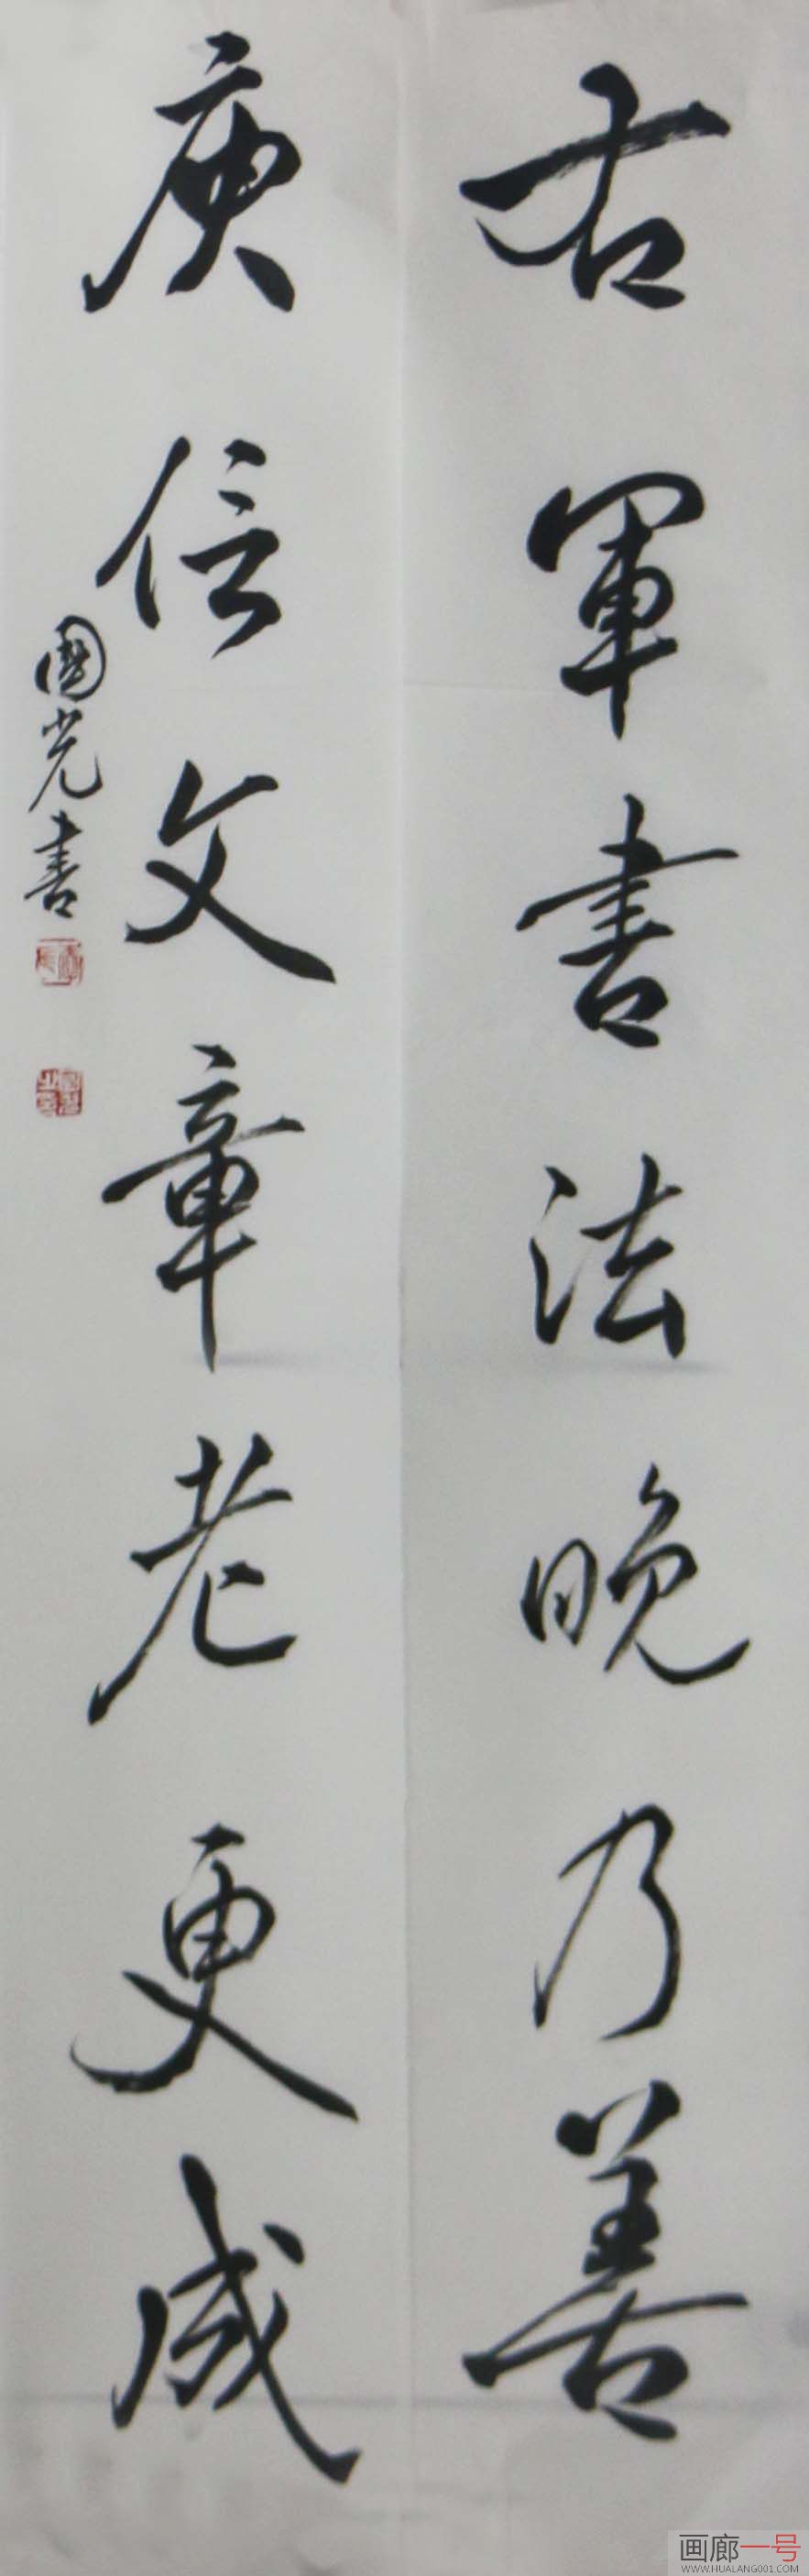 右军書法晚乃善
庾信文章老更成
國光書
画廊一号
WWW.HUALANG001.COM